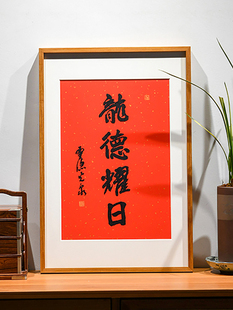 龍德耀日